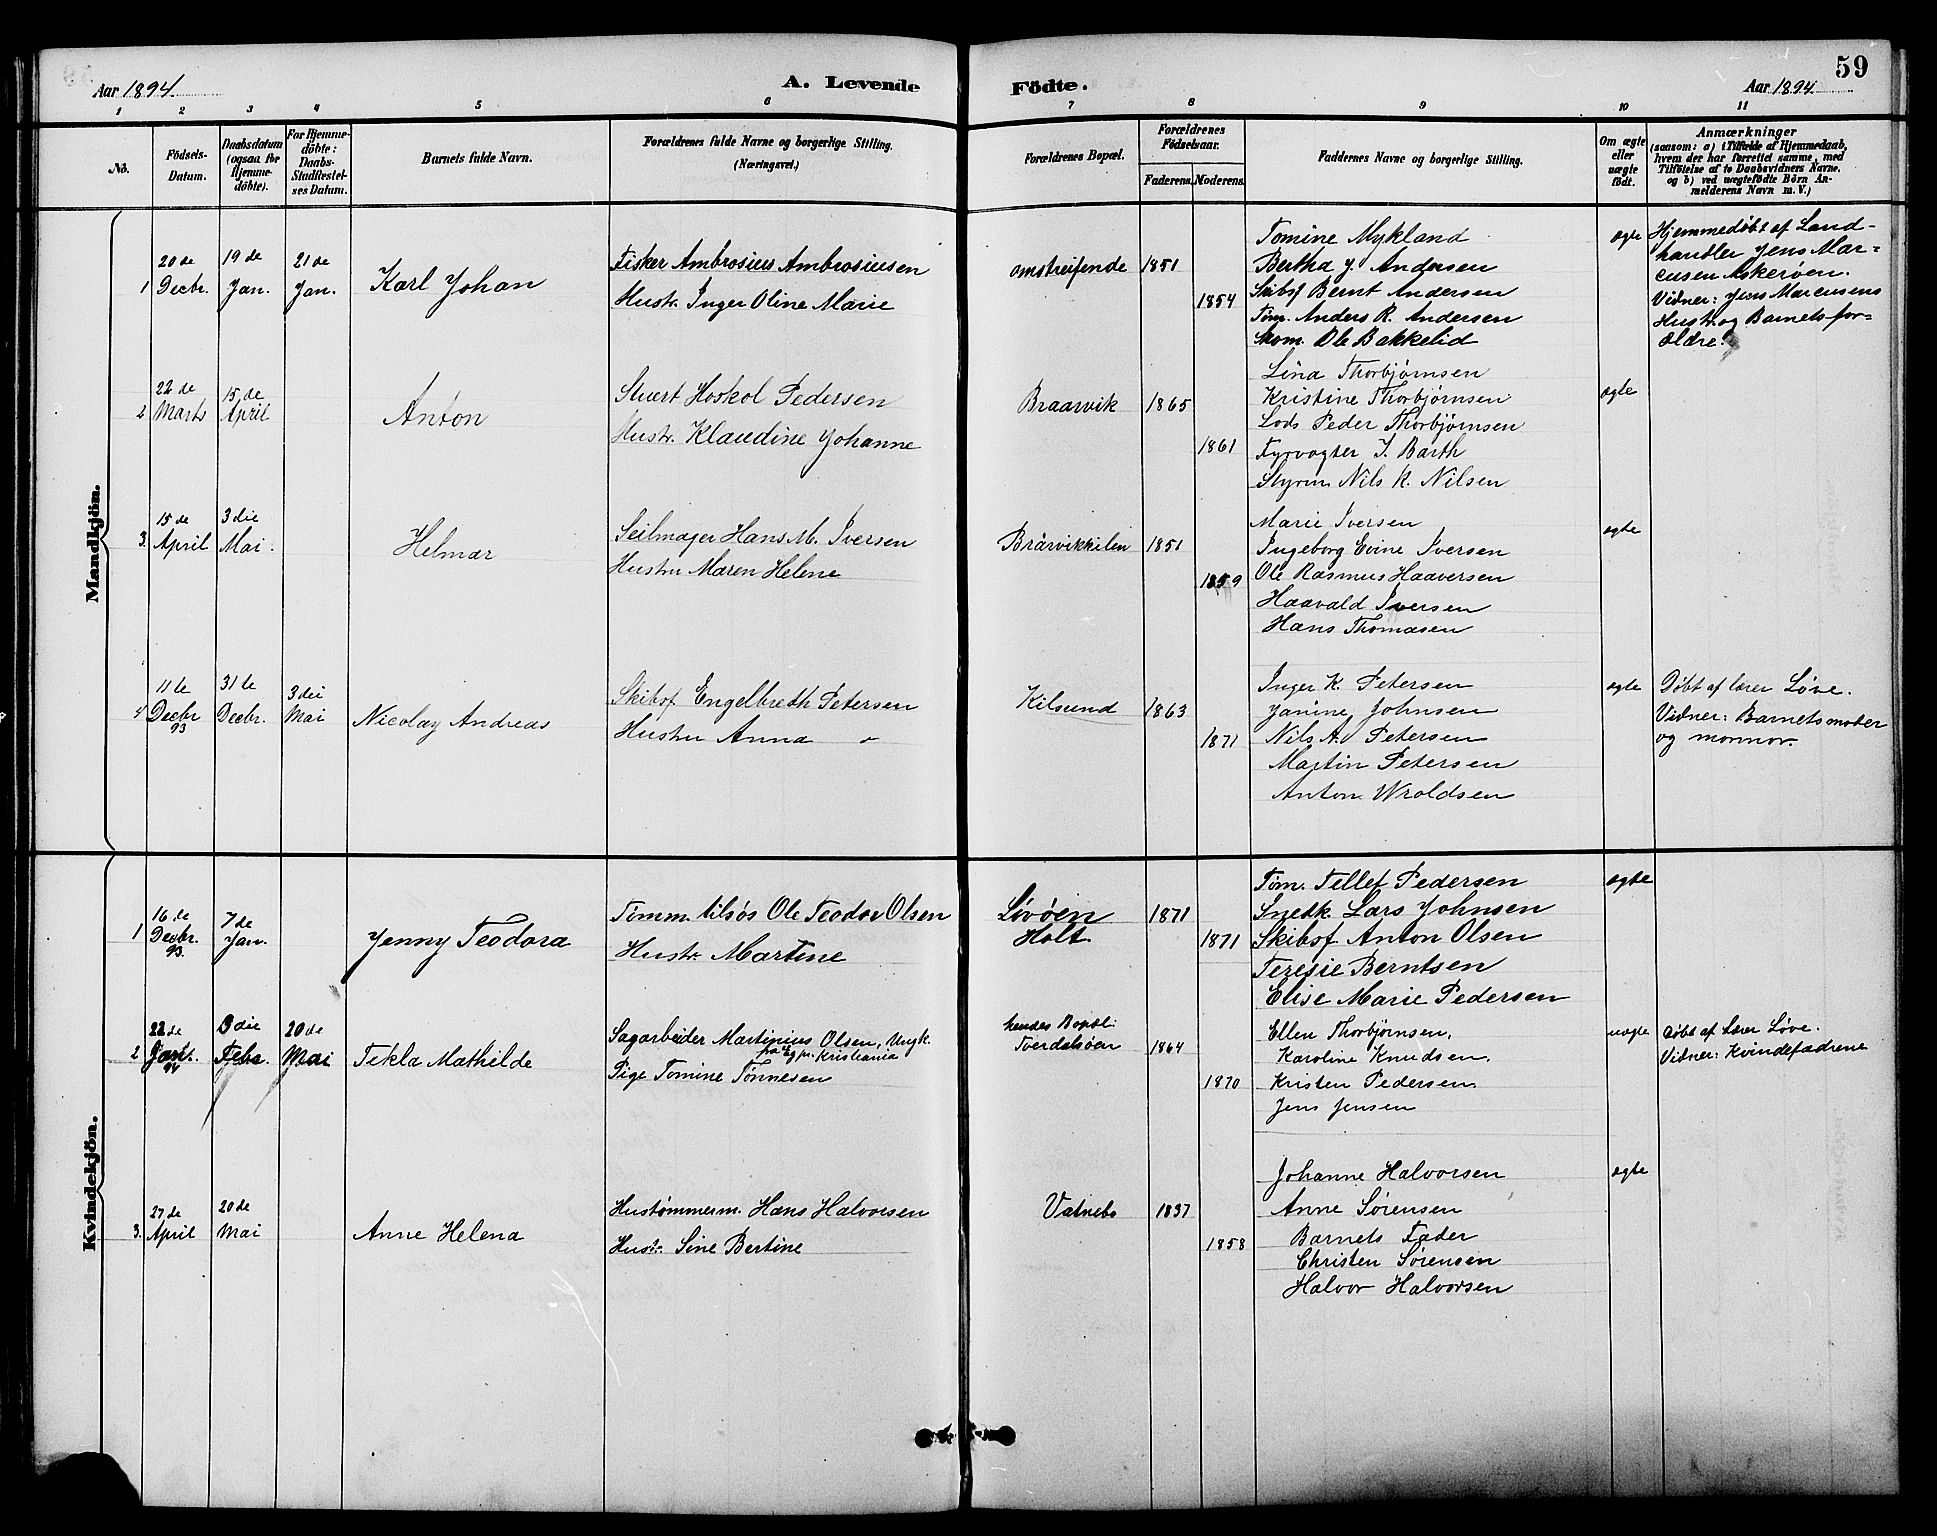 59
Aar 1894. A. Levende Födte. Aar 1894.
1 2 3 4 5 6 7 8 9 10 11
No.
Födsels-Datum.
Daabsdatum (ogsaa for Hjemmedöbte).
For Hjemmedöbte: Daabs-Stadfæstelses Datum.
Barnets fulde Navn.
Forældrenes fulde Navne og borgerlige Stilling. (Næringsvei.)
Forældrenes Bopæl.
Forældrenes Födselsaar.
Faderens. Moderens.
Faddernes Navne og borgerlige Stilling.
Om ægte eller uægte födt.
Anmærkninger
(saasom: a) i Tilfælde af Hjemmedaab,
hvem der har forrettet samme, med
Tilföielse af to Daabsvidners Navne.
og b) ved uægtefödte Börn An-
melderens Navn m. V.)
Mandkjön.
1 20de Decbr. 19de Jan. 21de Jan. Karl Johan
Fisker Ambrosius Ambrosiusen
Hustr. Inger Oline Marie
omstreifende 1851 1854
Tomine Mykland
Bertha J. Andersen
Skibsf Bernt Andersen
Tøm. Anders R. Andersen
Skom. Ole Bakkelid
ægte
Hjemmedøbt af Land-
handler Jens Mar-
cusen Askerøen.
Vidner: Jens Marcusens
Hustr og Barnets for-
ældre.
2 22de Marts 15de April Anton
Stuert Hoskol Pedersen
Hustr. Klaudine Johanne
Braarvik 1865 1861
Lina Thorbjørnsen
Kristine Thorbjørnsen
Lods Peder Thorbjørnsen
Fyrvogter J. Barth
Styrm. Nils K. Nilsen
ægte
3. 15de April 3die Mai. Helmar
Seilmager Hans M. Iversen
Hustru Maren Helene
Brårvikkilen 1851 1859
Marie Iversen
Ingeborg Evine Iversen
Ole Rasmus Haaversen
Haavald Iversen
Hans Thomasen
ægte
4 11te Decbr 93 31te Decbr. 3die Mai Nicolay Andreas
Skibsf Engelbreth Petersen
Hustru Anna
Kilsund 1863 1871
Inger K. Petersen
Janine Johnsen
Nils A. Petersen
Martin Petersen
Anton Wroldsen
ægte
Døbt af lærer Løve.
Vidner: Barnets moder
og mormor.
Kvindekjön.
1 16de Decbr. 93. 7de Jan. Jenny Teodora
Tømm. tilsøs Ole Teodor Olsen
Hustr. Martine
Løvøen
Holt.
1871 1871
Tøm. Tellef Pedersen
Snedk. Lars Johnsen
Skibsf Anton Olsen
Teresie Berntsen
Elise Marie Pedersen
ægte
2 22de Jan. 94 3die Feb. 20de Mai Tekla Mathilde
Sagarbeider Martinius Olsen, Ungk.
Kristiania
Pige Tomine Tønnesen
hendes Bopæl:
Tverdalsøen
1864 1870
Ellen Thorbjørnsen.
Karoline Knudsen.
Kristen Pedersen.
Jens Jensen
uægte
Døbt af lærer Løve.
Vidner: Kvindefadrene
3. 27de April 20de Mai Anne Helena
Hustømmerm. Hans Halvorsen
Hustr. Sine Bertine
Vatnebo 1837 1858
Johanne Halvorsen
Anne Sørensen
Barnets Fader
Christen Sørensen
Halvor Halvorsen
ægte